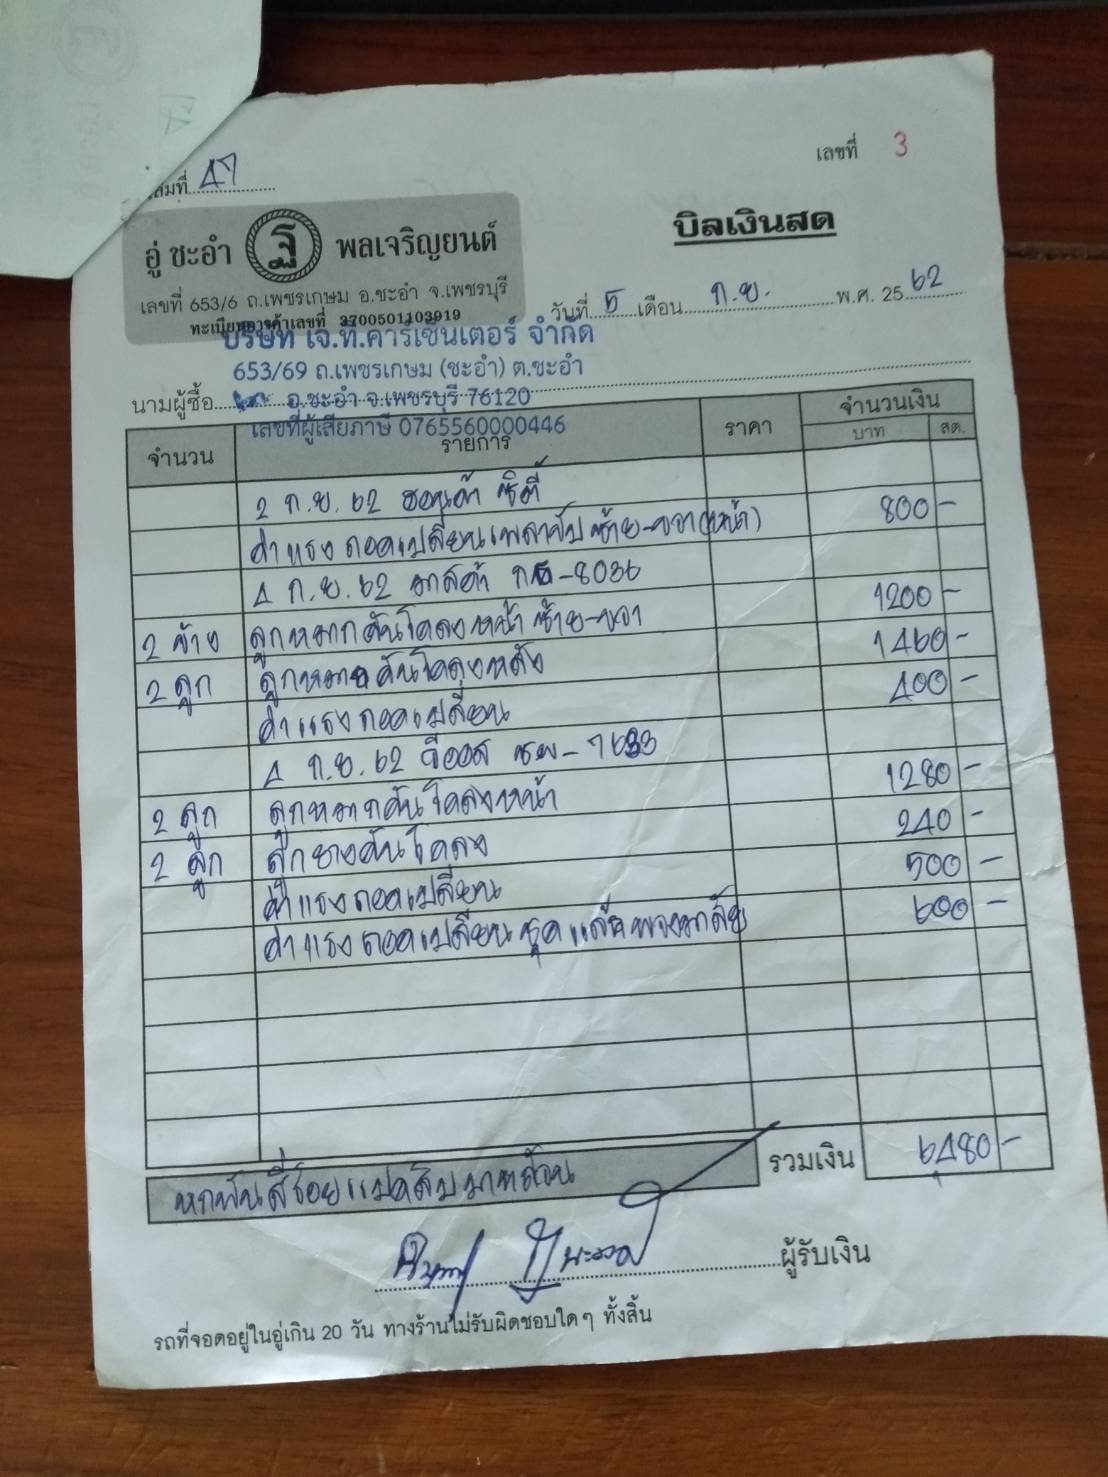 เล่มที่ 47
เลขที่ 3
อู่ ชะอำ ฐ พลเจริญยนต์
บิลเงินสด
เลขที่ 653/6 ถ.เพชรเกษม อ.ชะอำ จ.เพชรบุรี
ทะเบียนการค้าเลขที่ 3700501103919
วันที่ 5 เดือน ก.ย. พ.ศ. 2562
บริษัท เจ.ที.คาร์เซ็นเตอร์ จำกัด
653/69 ถ.เพชรเกษม (ชะอำ) ต.ชะอำ
นามผู้ซื้อ อ.ชะอำ จ.เพชรบุรี 76120
เลขที่ผู้เสียภาษี 0765560000446
จำนวน รายการ ราคา จำนวนเงิน
บาท สต.
2 ก.ย. 62 ฮอนด้า ซิตี้
ค่าแรงถอดเปลี่ยนเพลาขับซ้าย-ขวา(หน้า) 800 -
4 ก.ย. 62 -8036
2 ข้าง ลูกหมากกันโคลงหน้า ซ้าย-ขวา 1200 -
2 ลูก ลูกหมากกันโคลงหลัง 1460 -
ค่าแรงถอดเปลี่ยน 400 -
4 ก.ย. 62 วีออส
2 ลูก ลูกหมากกันโคลงหน้า 1280 -
2 ลูก ลูกยางกันโคลง 240 -
ค่าแรงถอดเปลี่ยน 500 -
ค่าแรงถอดเปลี่ยนชุดแร็คพวงมาลัย 600 -
รวมเงิน 6,480 -
หกพันสี่ร้อยแปดสิบบาทถ้วน
ผู้รับเงิน
รถที่จอดอยู่ในอู่เกิน 20 วัน ทางร้านไม่รับผิดชอบใดๆ ทั้งสิ้น